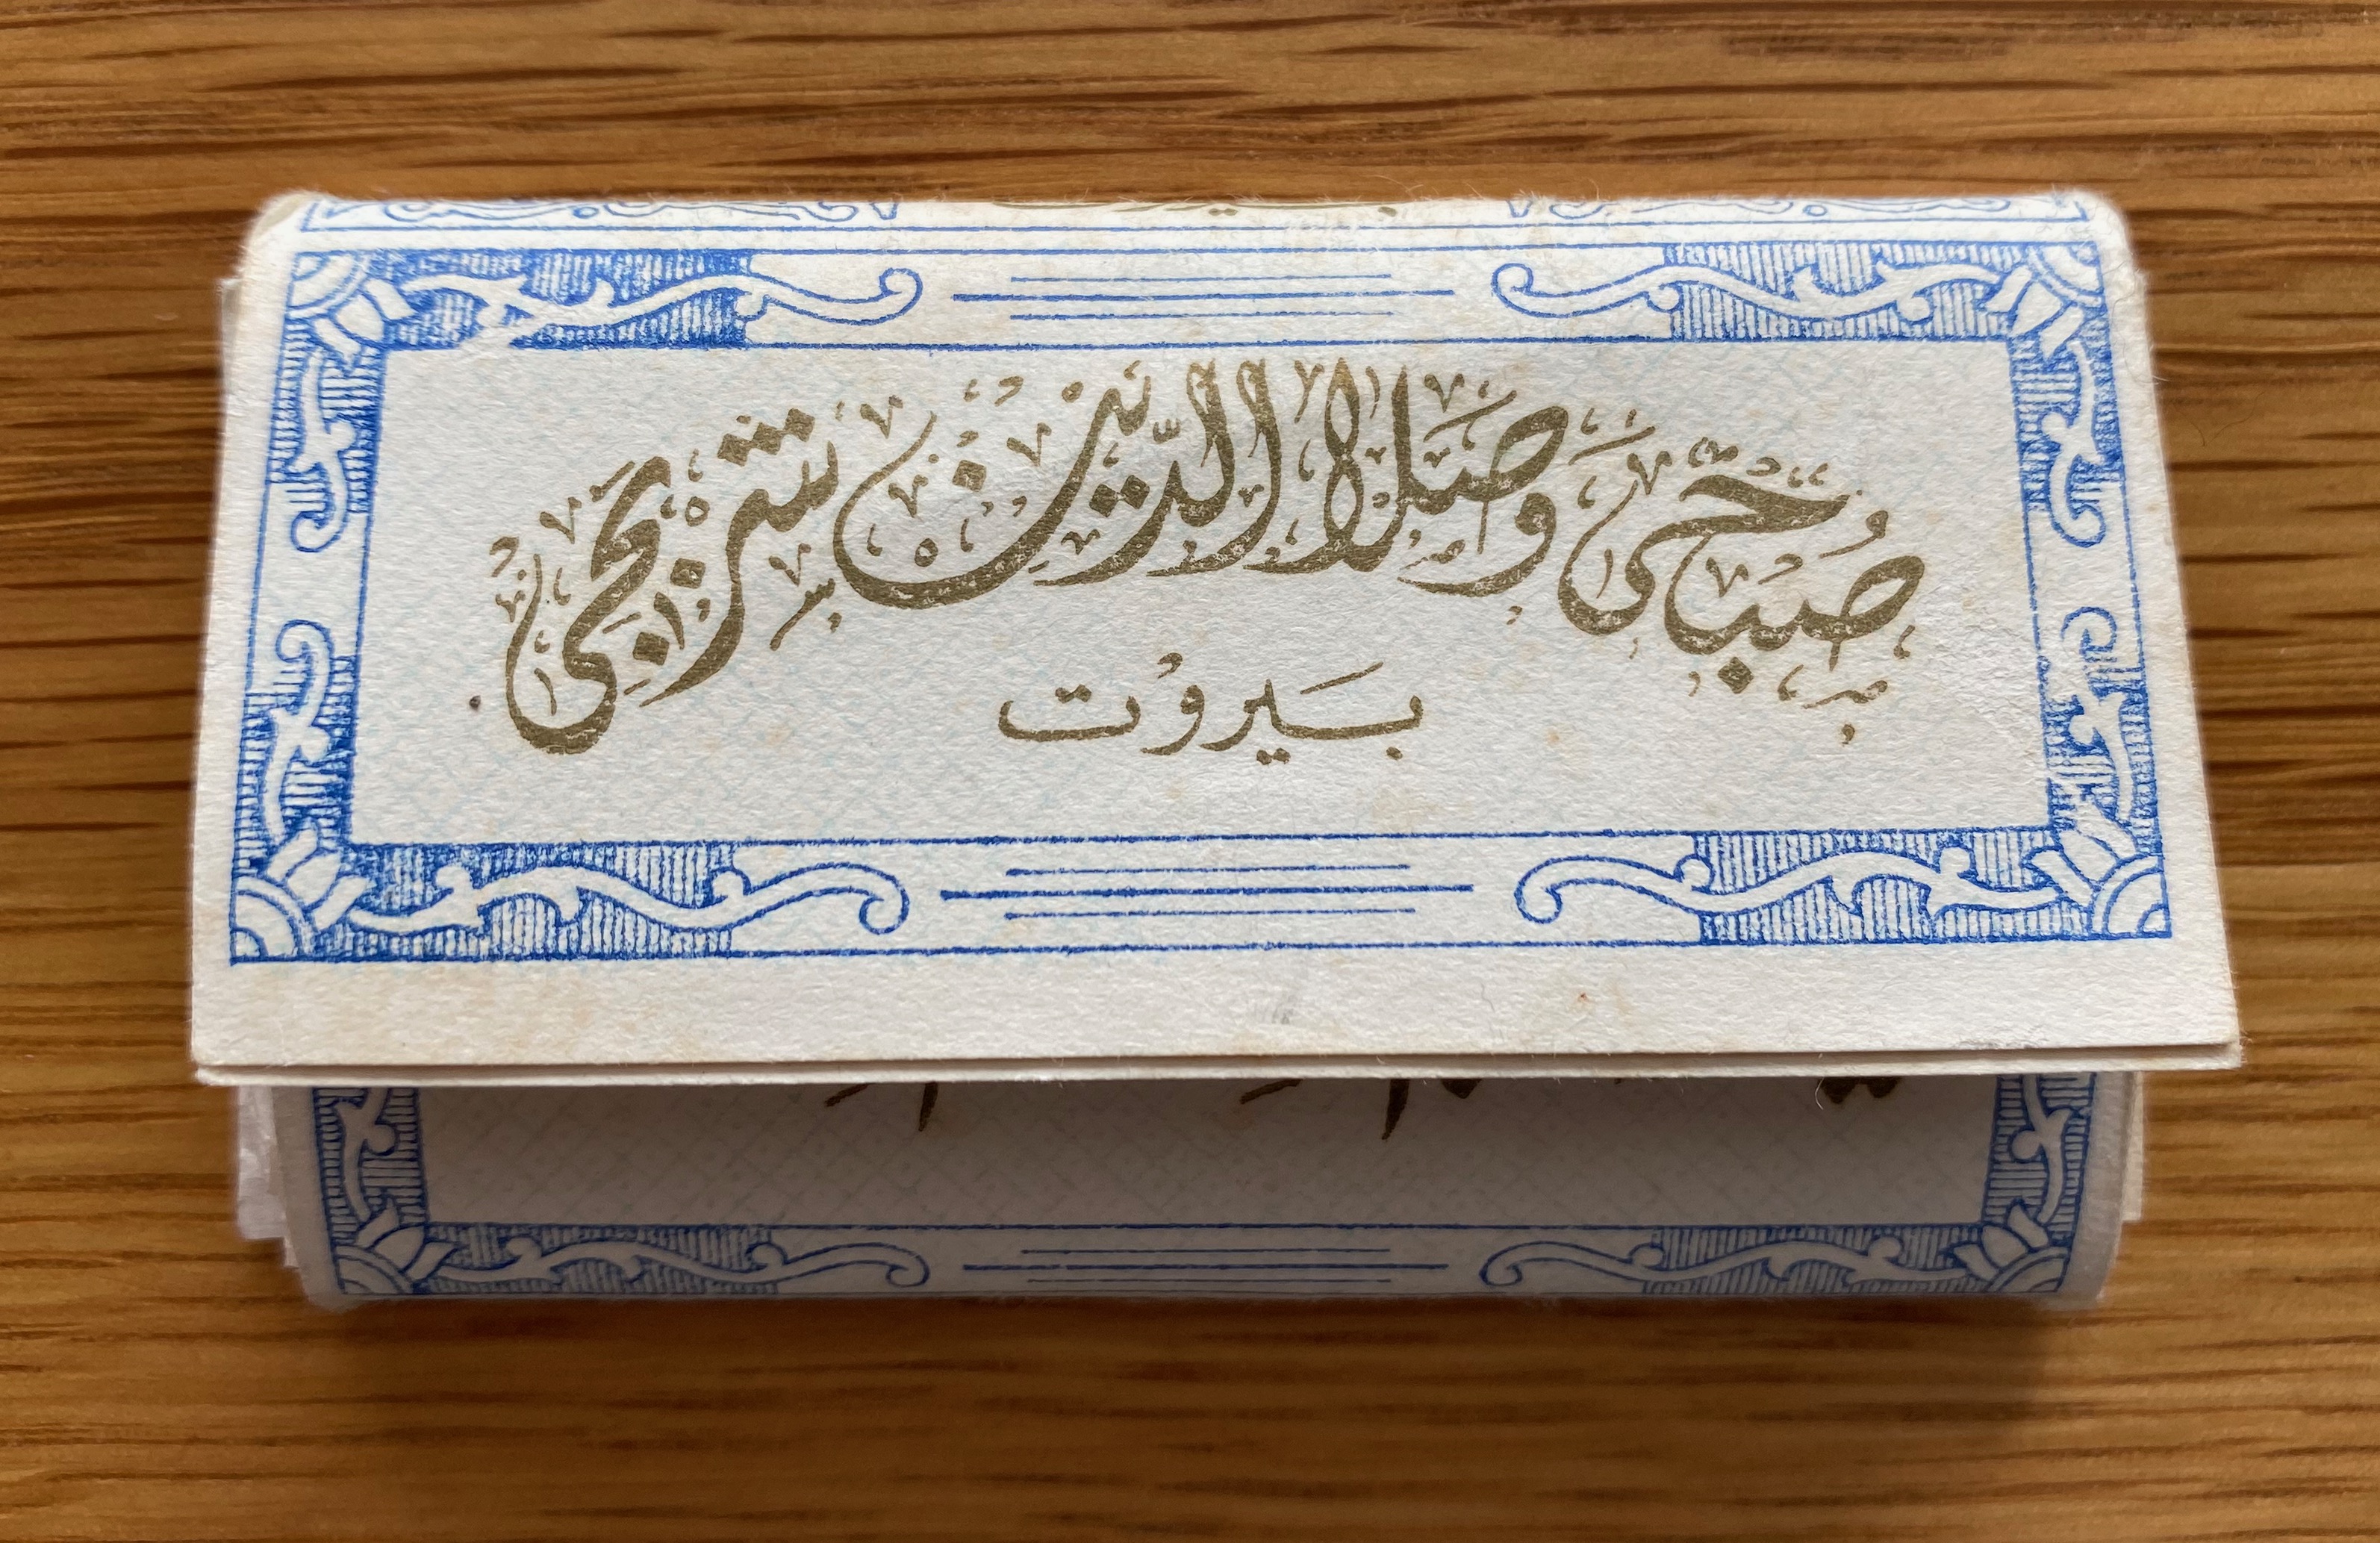 صُبحَى وَصَلاح الدّين شربجى
بَيروْت